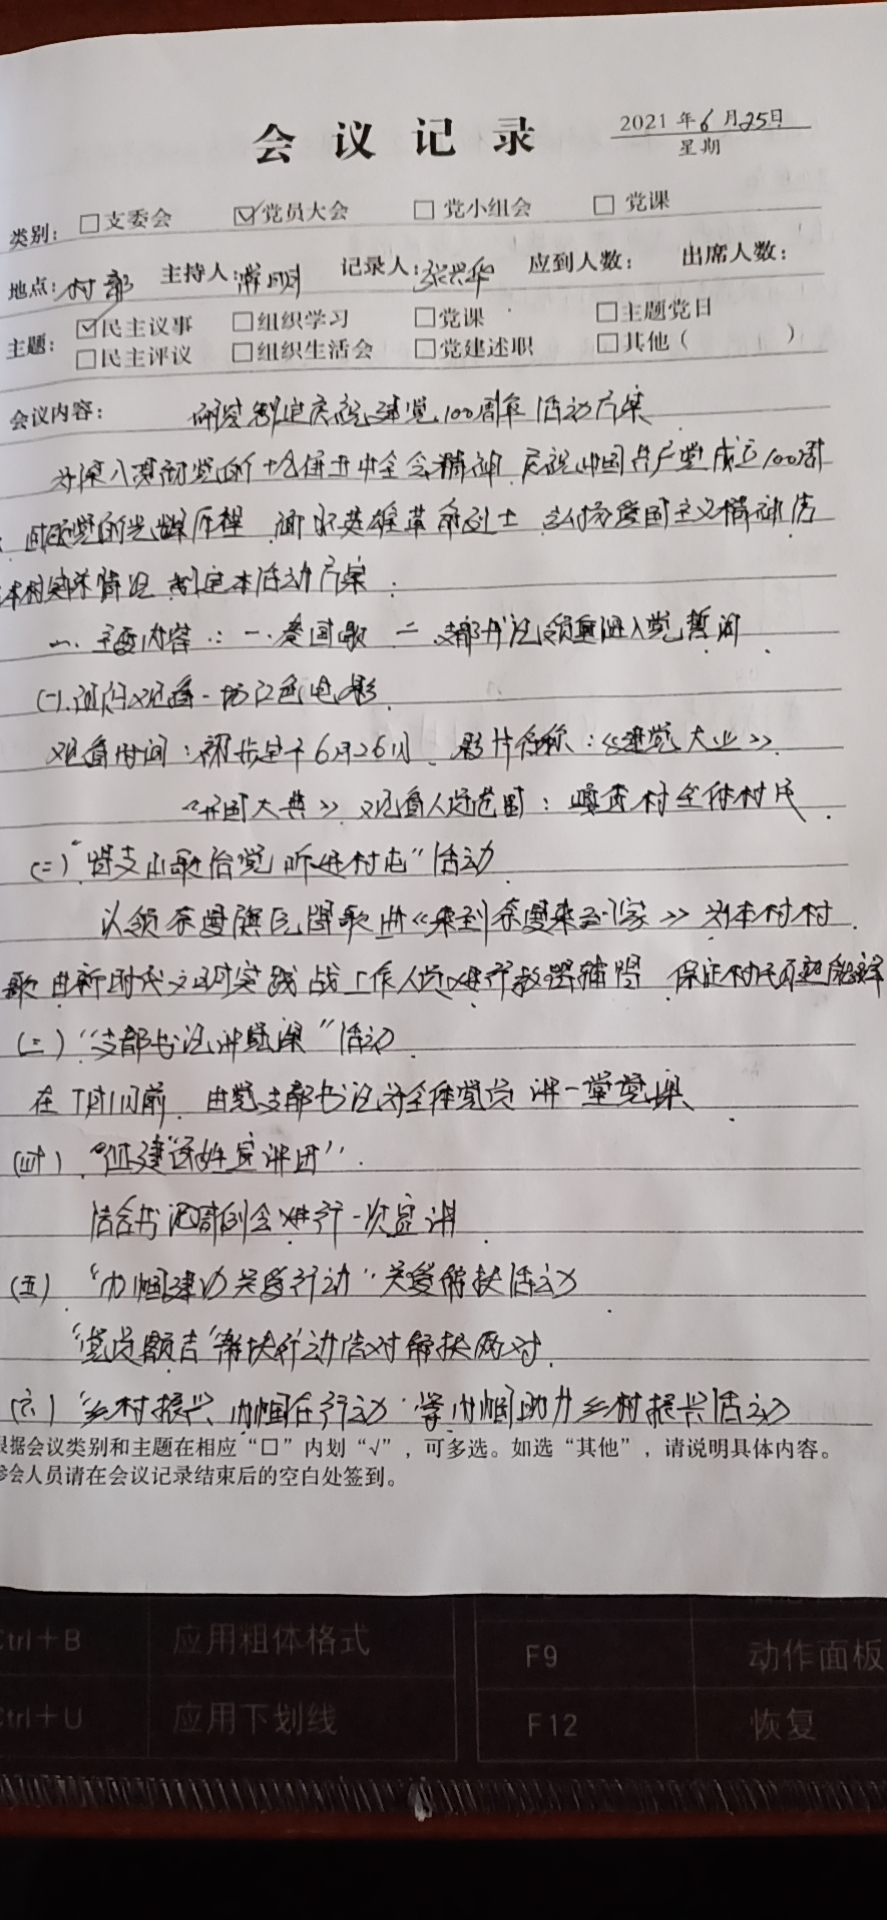 会议记录
2021年6月25日
星期
类别：□支委会 ☑党员大会 □党小组会 □党课
地点：村部 主持人： 记录人：张兴华 应到人数： 出席人数：
主题：☑民主议事 □组织学习 □党课 □主题党日
□民主评议 □组织生活会 □党建述职 □其他（ ）
会议内容： 研究制定庆祝建党100周年活动方案
为深入贯彻党的十九届五中全会精神 庆祝中国共产党成立100周
回顾党的光辉历程 缅怀英雄革命烈士 弘扬爱国主义精神 结
本村实际情况 制定本活动方案：
一、主要内容：一、爱国歌 二 支部书记领重温入党誓词
(一).组织观看一场红色电影.
观看时间：初步定于6月26日、影片名称：《建党大业》、
《开国大典》 观看人员范围： 村全体村民
(二)“唱支山歌给党听进村屯”活动
以 《来到 来到家》 为本村村
歌 由新时代文明实践站工作人员进行教唱辅导 保证村民
(三)“支部书记讲党课”活动
在7月1日前 由党支部书记为全体党员讲一堂党课、
(四) “ 宣讲团”.
结合书记周例会进行一次宣讲
(五) “巾帼建功关爱行动”关爱帮扶活动
“党员 ”帮扶行动结对帮扶两对.
(六)“乡村振兴、巾帼在行动” 巾帼助力乡村振兴活动
根据会议类别和主题在相应“□”内划“√”，可多选。如选“其他”，请说明具体内容。
参会人员请在会议记录结束后的空白处签到。
Ctrl＋B 应用粗体格式 F9 动作面板
Ctrl＋U 应用下划线 F12 恢复